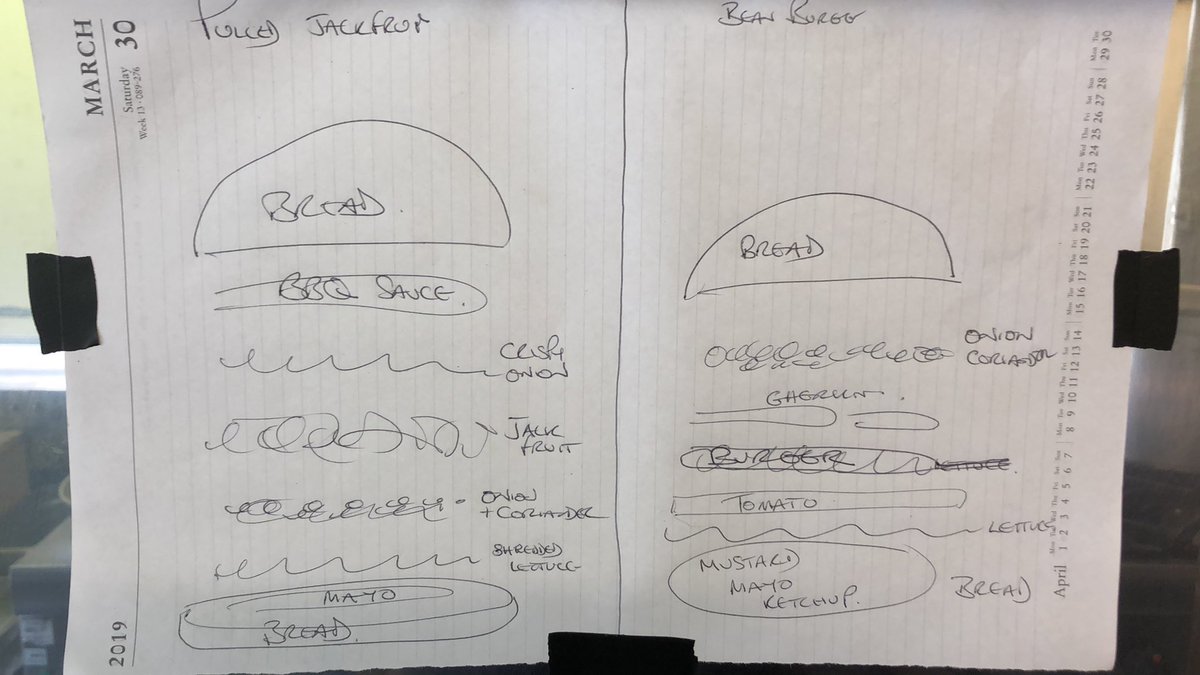 MARCH 30
Saturday
Week 13 · 089-276
2019
PULLED JACKFRUIT
BREAD.
BBQ SAUCE.
CRISPY
ONION
JACK
FRUIT
ONION
+ CORIANDER
SHREDDED
LETTUCE
MAYO
BREAD.
BEAN BURGE
BREAD
ONION
CORIANDER
GHERKIN.
BURGER
LETTUCE.
TOMATO
LETTUCE
MUSTARD
MAYO
KETCHUP.
BREAD
April
Mon Tue Wed Thu Fri Sat Sun Mon Tue Wed Thu Fri Sat Sun Mon Tue Wed Thu Fri Sat Sun Mon Tue Wed Thu Fri Sat Sun Mon Tue
1 2 3 4 5 6 7 8 9 10 11 12 13 14 15 16 17 18 19 20 21 22 23 24 25 26 27 28 29 30